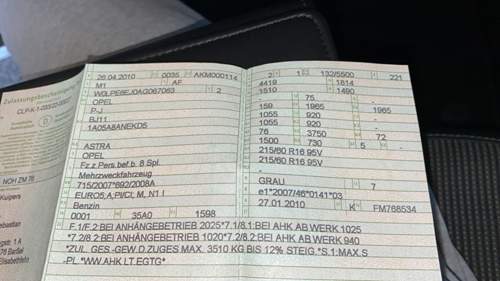 Zulassungsbescheinigung
NOH ZM 76
Kuipers
26.04.2010 0035 AKM000114
M1 AF
W0LPE6EJ0AG067063 2
OPEL
P-J
BJ11
1A05A8ANEKD5
ASTRA
OPEL
Fz.z.Pers.bef.b. 8 Spl.
Mehrzweckfahrzeug
715/2007*692/2008A
EURO5;A;PI/CI; M, N1 I
Benzin
0001 35A0 1598
2 1 132/5500 221
4419 1814
1510 1490
75
159 1965 1965
1055 920
1055 920
76 3750 72
1500 730 5
215/60 R16 95V
215/60 R16 95V
GRAU 7
e1*2007/46*0141*03
27.01.2010 K FM768534
F.1/F.2:BEI ANHÄNGEBETRIEB 2025*7.1/8.1:BEI AHK AB WERK 1025
*7.2/8.2:BEI ANHÄNGEBETRIEB 1020*7.2/8.2:BEI AHK AB WERK 940
*ZUL. GES.-GEW.D ZUGES MAX. 3510 KG BIS 12% STEIG.*S.1:MAX.S
-PL.*WW.AHK LT.EGTG*